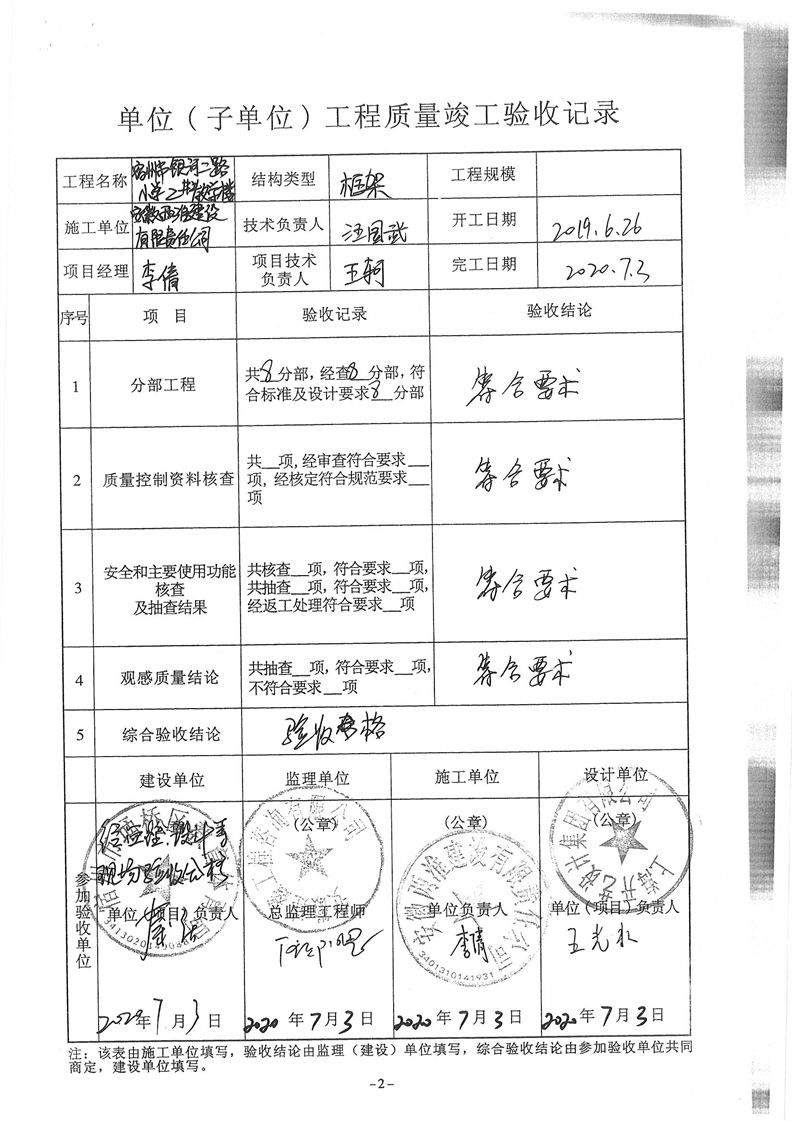 单位（子单位）工程质量竣工验收记录
工程名称 宿州市银河二路 结构类型 框架 工程规模
小学2#教学楼
施工单位 安徽两淮建设 技术负责人 汪国武 开工日期 2019.6.26
有限责任公司
项目经理 李倩 项目技术 王轲 完工日期 2020.7.3
负责人
序号 项 目 验收记录 验收结论
1 分部工程 共8分部，经查8分部，符 符合要求
合标准及设计要求8分部
2 质量控制资料核查 共__项，经审查符合要求__ 符合要求
项，经核定符合规范要求__
项
3 安全和主要使用功能 共核查__项，符合要求__项， 符合要求
核查 共抽查__项，符合要求__项，
及抽查结果 经返工处理符合要求__项
4 观感质量结论 共抽查__项，符合要求__项， 符合要求
不符合要求__项
5 综合验收结论 验收合格
参加验收单位
建设单位 监理单位 施工单位 设计单位
(公章) (公章) (公章)
现场验收合格
单位（项目）负责人 总监理工程师 单位负责人 单位（项目）负责人
李倩 王光
安徽两淮建设有限责任公司
3401310141931
2020年7月3日 2020年7月3日 2020年7月3日 2020年7月3日
注：该表由施工单位填写，验收结论由监理（建设）单位填写，综合验收结论由参加验收单位共同
商定，建设单位填写。
-2-